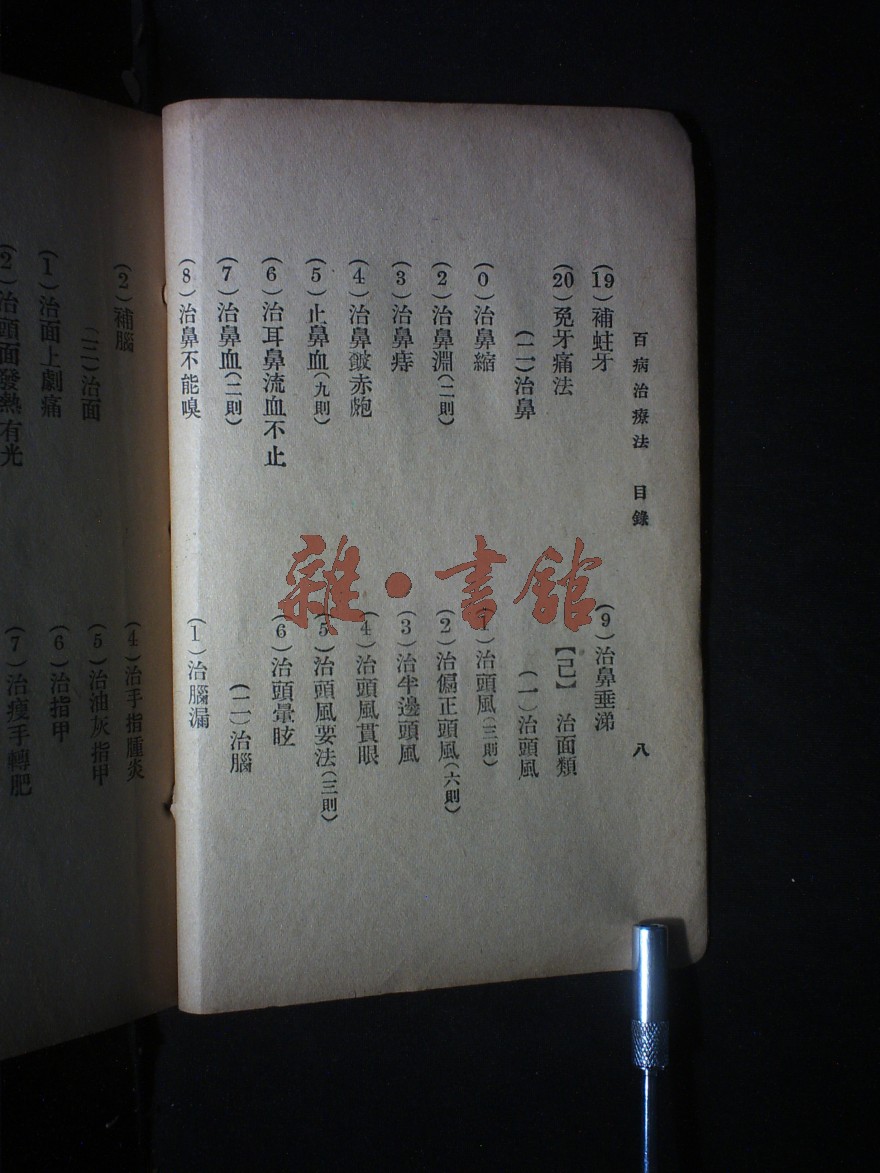 百病治療法　目錄
八
(19)補蛀牙
(20)免牙痛法
(二)治鼻
(0)治鼻縮
(2)治鼻淵(二則)
(3)治鼻痔
(4)治鼻皶赤皰
(5)止鼻血(九則)
(6)治耳鼻流血不止
(7)治鼻血(二則)
(8)治鼻不能嗅
(9)治鼻垂涕
【己】　治面類
(一)治頭風
(1)治頭風(三則)
(2)治偏正頭風(六則)
(3)治半邊頭風
(4)治頭風貫眼
(5)治頭風要法(三則)
(6)治頭暈眩
(二)治腦
(1)治腦漏
(2)補腦
(三)治面
(1)治面上劇痛
(2)治頭面發熱有光
(4)治手指腫炎
(5)治油灰指甲
(6)治指甲
(7)治瘦手轉肥
雜·書館